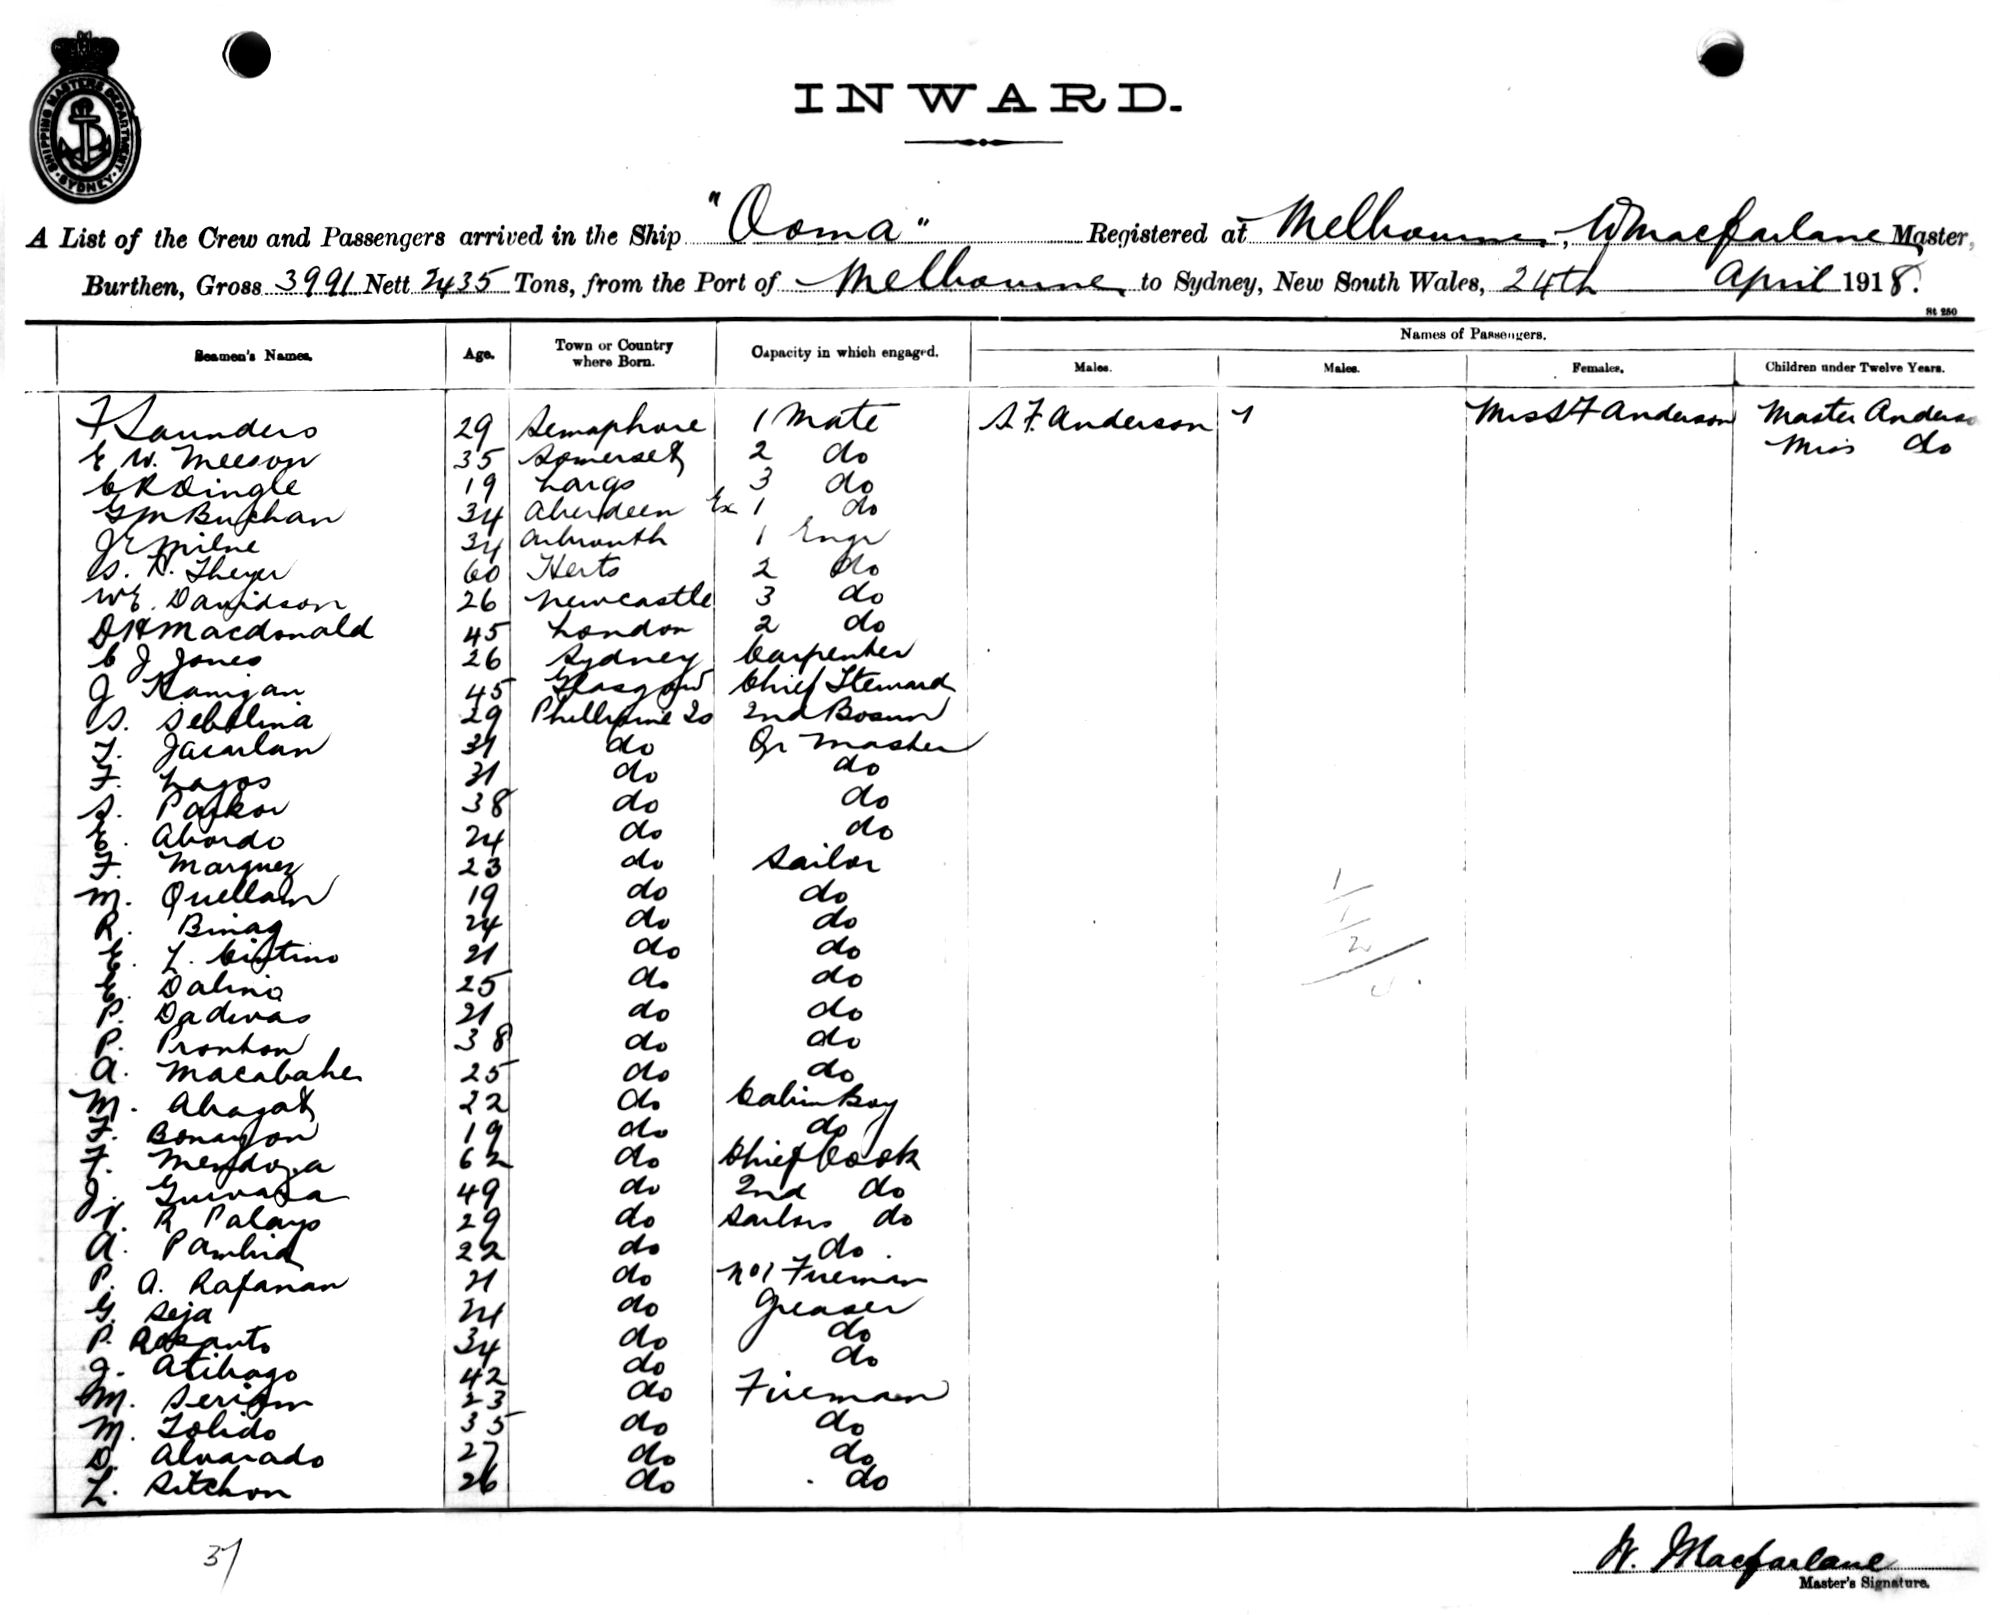 SHIPPING MASTERS DEPARTMENT SYDNEY
INWARD.
A List of the Crew and Passengers arrived in the Ship "Ooma" Registered at Melbourne, W Macfarlane Master,
Burthen, Gross 3991 Nett 2435 Tons, from the Port of Melbourne to Sydney, New South Wales, 24th April 1918.
St 250
Seamen's Names. Age. Town or Country where Born. Capacity in which engaged. Names of Passengers.
Males. Males. Females. Children under Twelve Years.
F Saunders 29 Semaphore 1 Mate S F. Anderson 1 Mrs S F Anderson Master Anderso
E W. Meeson 35 Somerset 2 do Miss do
C R Dingle 19 Largs 3 do
G M Buchan 34 Aberdeen Ex 1 do
J E Milne 34 Arbroath 1 Engr
S. H. Theyer 60 Herts 2 do
W E. Davidson 26 Newcastle 3 do
D H Macdonald 45 London 2 do
C J Jones 26 Sydney Carpenter
J Hanigan 45 Glasgow Chief Steward
S. Sebelina 29 Phillipine Is 2nd Bosun
T. Jacarlan 31 do Qr Master
F. Lagos 31 do do
S. Paskor 38 do do
E. Abordo 24 do do
F. Marquez 23 do Sailor
M. Quellam 19 do do
R. Binag 24 do do
E. L. Cistino 21 do do
E. Dalino 25 do do
P. Dadivas 21 do do
P. Pronton 38 do do
A. Macabahe 25 do do
M. Abagat 22 do Cabin Boy
F. Bonayon 19 do do
F. Mendoza 62 do Chief Cook
J. 49 do 2nd do
V. R. Palayo 29 do Sailors do
A. Pambid 22 do do.
P. A. Rafanan 21 do No 1 Fireman
G. Seja 24 do Greaser
P. 34 do do
J. Atibago 42 do do
M. 23 do Fireman
M. Tolido 35 do do
D. Alvarado 27 do do
L. Sitchon 26 do do
1
1
2
37
W. Macfarlane
Master's Signature.